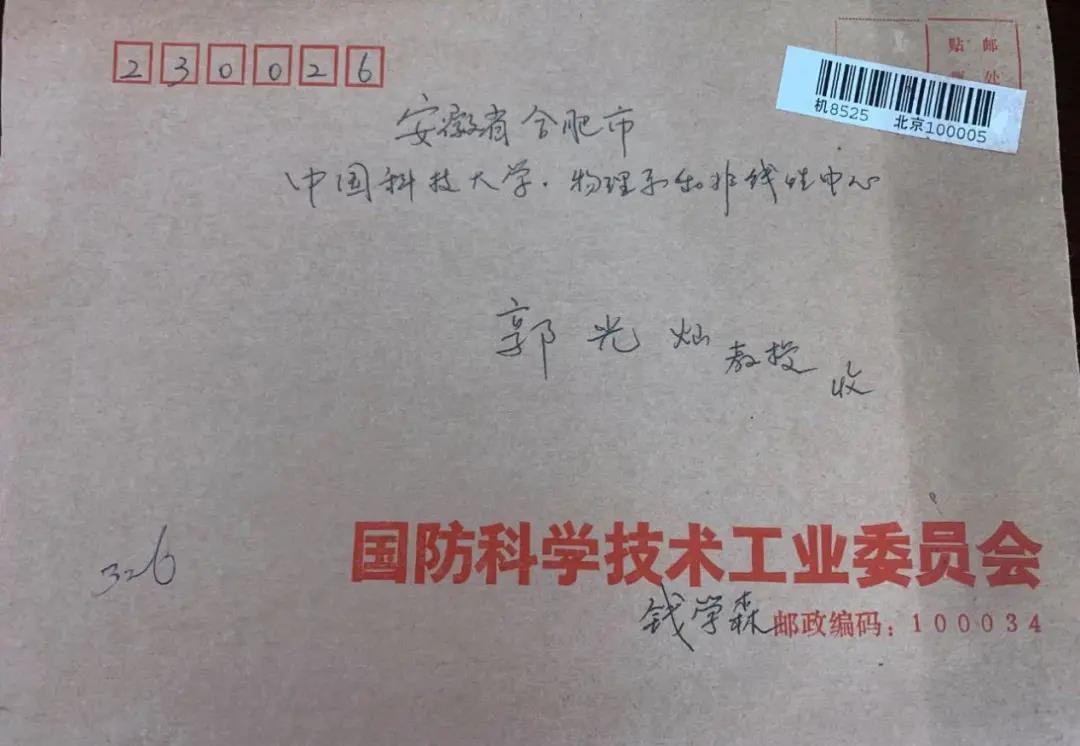 230026
贴 邮
处
机8525 北京100005
安徽省合肥市
中国科技大学·物理系和非线性中心
郭光灿教授 收
326
国防科学技术工业委员会
钱学森 邮政编码：100034